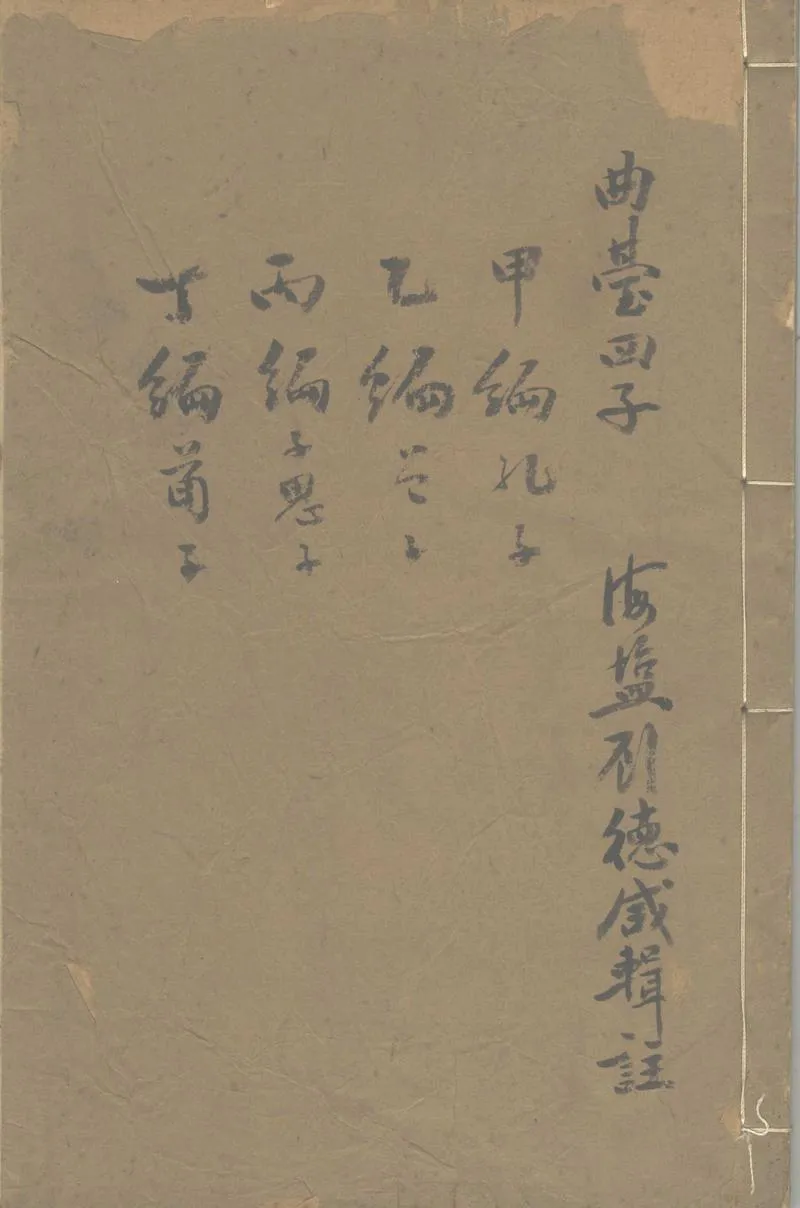 曲臺四子 海塩顾德咸輯註
甲編孔子
乙編曾子
丙編子思子
丁編荀子